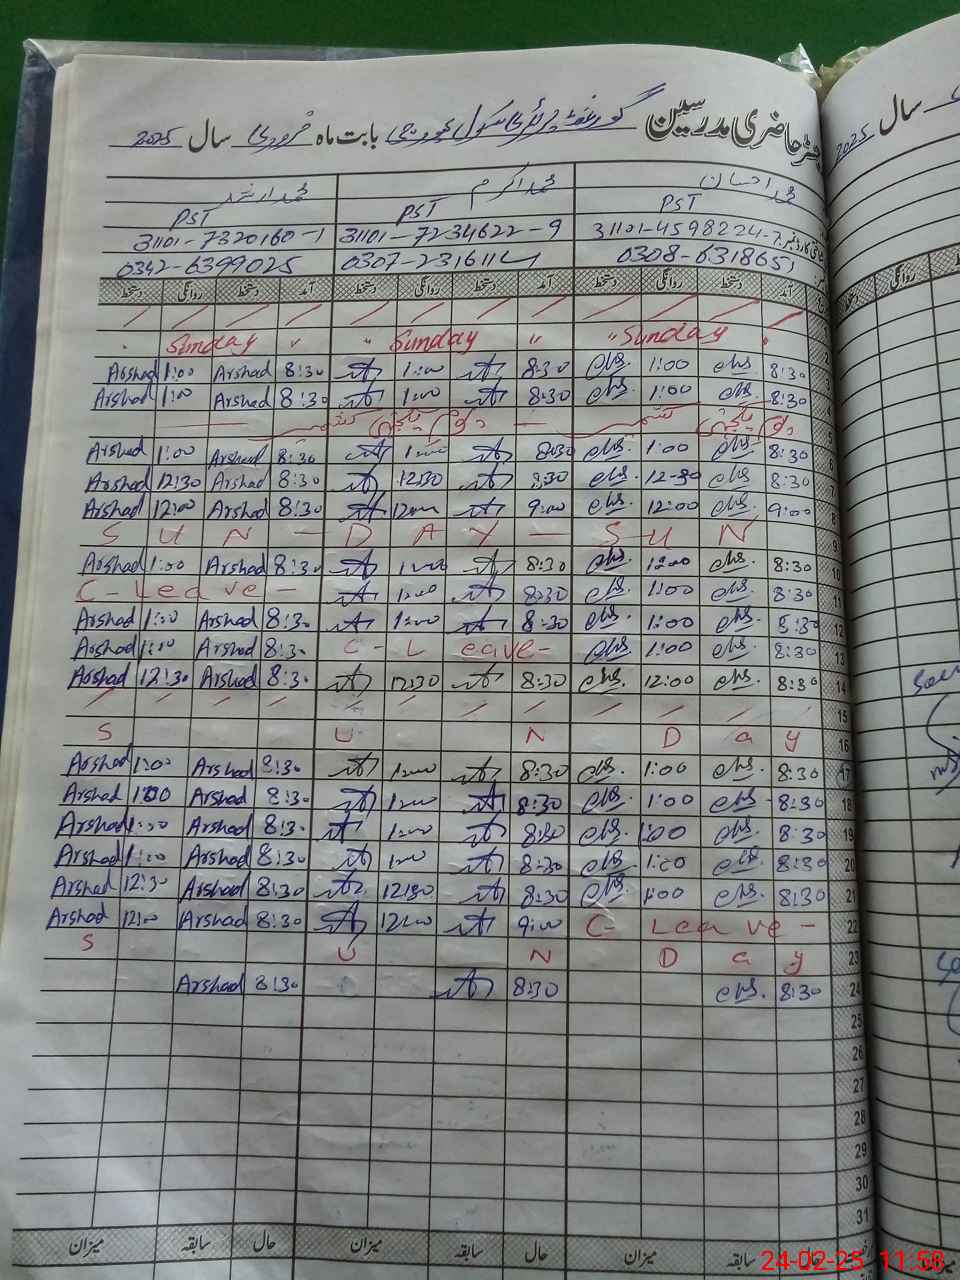 رجسٹر حاضری مدرسین گورنمنٹ پرائمری سکول بابت ماہ فروری سال 2025
سال 2025
محمد احسان محمد اکرم محمد ارشد
PST PST PST
شناختی کارڈ نمبر 31101-4598224-7 31101-7234622-9 31101-7320160-1
0308-6318651 0307-2316114 0342-6399025
آمد دستخط روانگی دستخط آمد دستخط روانگی دستخط آمد دستخط روانگی دستخط
روانگی دستخط
Sunday " " Sunday " " Sunday
Arshad 1:00 Arshad 8:30 1:00 8:30 1:00 8:30 3
Arshad 1:00 Arshad 8:30 1:00 8:30 1:00 8:30 4
یوم یکجہتی کشمیر یوم یکجہتی کشمیر 5
Arshad 1:00 Arshad 8:30 1:00 8:30 1:00 8:30 6
Arshad 12:30 Arshad 8:30 12:30 8:30 12:30 8:30 7
Arshad 12:00 Arshad 8:30 12:00 9:00 12:00 9:00 8
S U N - D A Y - S U N 9
Arshad 1:00 Arshad 8:30 1:00 8:30 1:00 8:30 10
C - Leave - 1:00 8:30 1:00 8:30 11
Arshad 1:00 Arshad 8:30 1:00 8:30 1:00 8:30 12
Arshad 1:00 Arshad 8:30 C - Leave - 1:00 8:30 13
Arshad 12:30 Arshad 8:30 12:30 8:30 12:00 8:30 14
15
S U N D a y 16
Arshad 1:00 Arshad 8:30 1:00 8:30 1:00 8:30 17
Arshad 1:00 Arshad 8:30 1:00 8:30 1:00 8:30 18
Arshad 1:00 Arshad 8:30 1:00 8:30 1:00 8:30 19
Arshad 1:00 Arshad 8:30 1:00 8:30 1:00 8:30 20
Arshad 12:30 Arshad 8:30 12:30 8:30 1:00 8:30 21
Arshad 12:00 Arshad 8:30 12:00 9:00 C - Leave - 22
S U N D a y 23
Arshad 8:30 8:30 8:30 24
25
26
27
28
29
30
31
حال سابقہ میزان حال سابقہ میزان حال سابقہ میزان
24-02-25 11:58